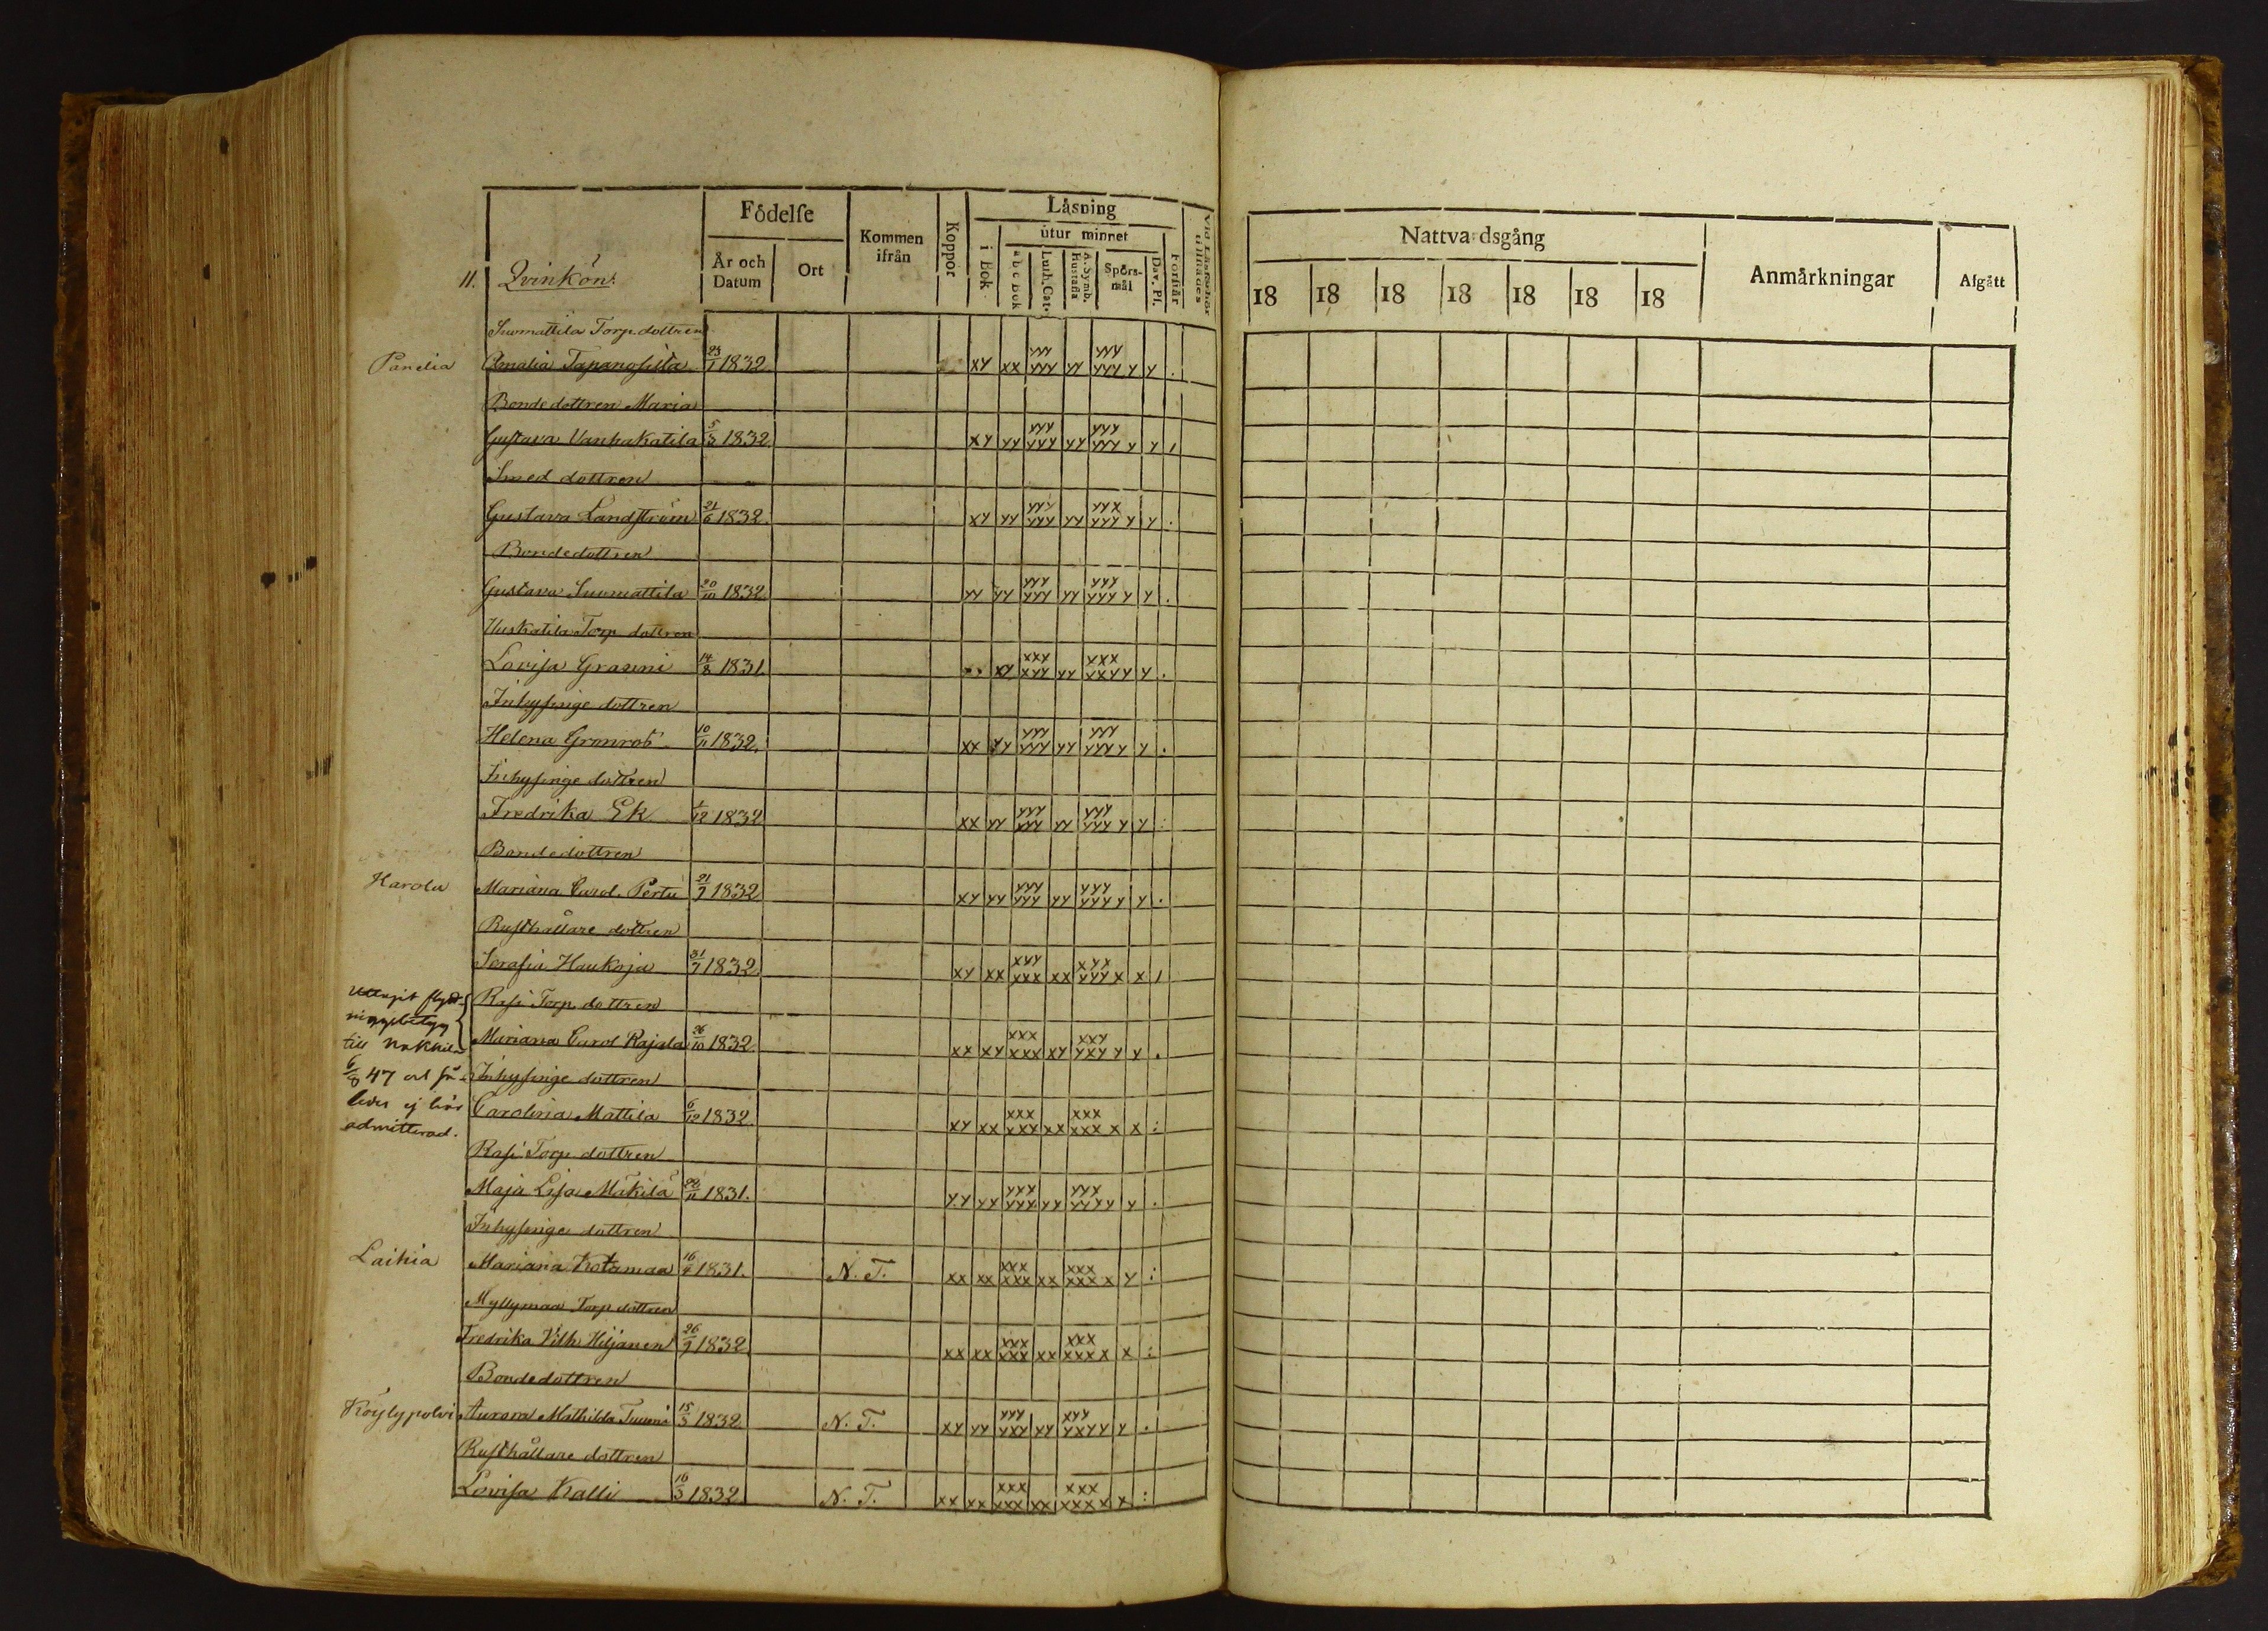 Födelse
Kommen ifrån
Koppor
Läsning
utur minnet
År och Datum
Ort
i Bok
a b c Bok
Luth. Cat.
A. Symb. Hustafla
Spörsmål
Dav. Pf.
Förstår
11. Qvinkön:
Suomattila Torp. dottren
Panelia Amalia Tapanofilta 23/1 1832 xy xx yyy yyy yy yyy yyy y y .
Bonde dottren Maria
Gustava Vanhakatila 5/3 1832. xy yy yyy yyy yy yyy yyy y y /
Smed dottren
Gustava Landström 21/6 1832. xy yy yyy yyy yy yyx yyy y y .
Bondedottren
Gustava Suomattila 20/10 1832. yy yy yyy yyy yy yyy yyy y y .
Uuskatila Torp dottren
Lovisa Granni 14/8 1831. xy xxy xyy yy yxx xxy y y .
Inhysinge dottren
Helena Gronros 10/11 1832. xx yy yyy yyy yy yyy yyy y y .
Inhysinge dottren
Fredrika Ek 1/12 1832 xx yy yyy yyy yy yyy yyy y y :
Bondedottren
Harola Mariana Carol. Perttu 21/7 1832 xy yy yyy yyy yy yyy yyy y y .
Rusthållare dottren
Serafia Haukoja 31/7 1832. xy xx xyy xxx xx xyx yyy x x /
Rasi Torp. dottren
Mariana Carol Rajala 26/10 1832. xx xy xxx xxx xy xxy yxy y y .
till Nakkila
6/8 47 och så-
ledes ej här
admitterad.
Inhysinge dottren
Carolina Mattila 6/12 1832. xy xx xxx xxx xx xxx xxx x x :
Rasi Torp dottren
Maja Lisa Mäkilä 22/11 1831. yy yy yyx yyx yy yyx yyx y y .
Inhysinge dottren
Laihia Mariana Kotamaa 16/4 1831. N. T. xx xx xxx xxx xx xxx xxx x y :
Myllymaa Torp dottren
Fredrika Vilh. Hiljanen 26/9 1832. xx xx xxx xxx xx xxx xxx x x :
Bondedottren
Köylypolvi Aurora Mathilda Tuuni 15/3 1832. N. T. xy yy yyy yxy yy xyy yxy y y .
Rusthållare dottren
Lovisa Kalli 16/3 1832. N. T. xx xx xxx xxx xx xxx xxx x x :
Nattvardsgång
18 18 18 18 18 18 18
Anmärkningar
Afgått